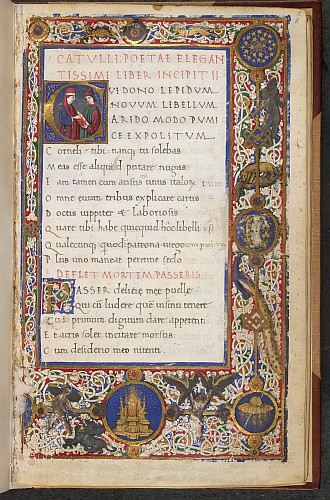 CATVLLI POETAE ELEGAN
TISSIMI LIBER INCIPIT II
QVI DONO LEPIDVM
NOVVM LIBELLVM
ARIDO MODO PVMI
CE EXPOLITVM
Corneli tibi nanq; tu solebas
Meas esse aliquid putare nugas
Iam tamen cum ausus unus
Omne euum tribus explicare cartis
Doctis iuppiter & laboriosis
Quare tibi habe quicquid hoc libelli est
Qualecunq; quod patrona uirgo
Plus uno maneat perenne seclo
DEFLET MORTEM PASSERIS
PASSER delitie mee puelle
Qui cum ludere que in sinu tenere
Cui primum digitum dare appetenti
Et acris solet incitare morsus
Cum desiderio meo nitenti